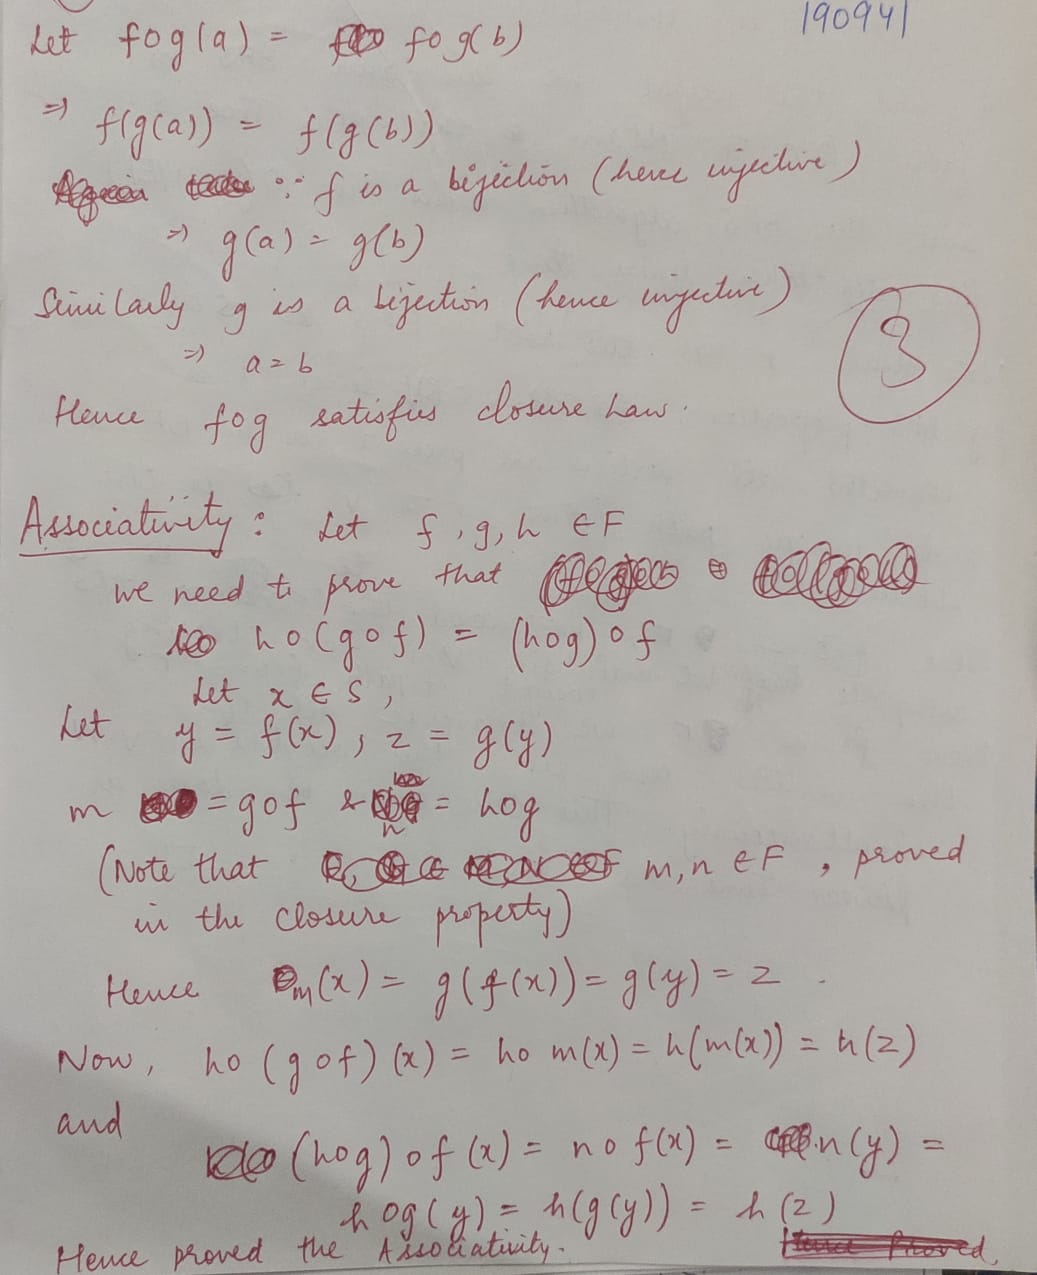 190941
Let fog(a) = fog(b)
⇒ f(g(a)) = f(g(b))
∵ f is a bijection (hence injective)
⇒ g(a) = g(b)
Similarly g is a bijection (hence injective)
⇒ a = b
3
Hence fog satisfies closure Law.
Associativity : Let f, g, h ∈ F
we need to prove that
ho(gof) = (hog)of
Let x ∈ S,
Let y = f(x), z = g(y)
m = gof & n = hog
(Note that m,n ∈ F, proved
in the closure property)
Hence m(x) = g(f(x)) = g(y) = z.
Now, ho(gof)(x) = ho m(x) = h(m(x)) = h(z)
and
(hog)of(x) = nof(x) = n(y) =
hog(y) = h(g(y)) = h(z)
Hence proved the Associativity.